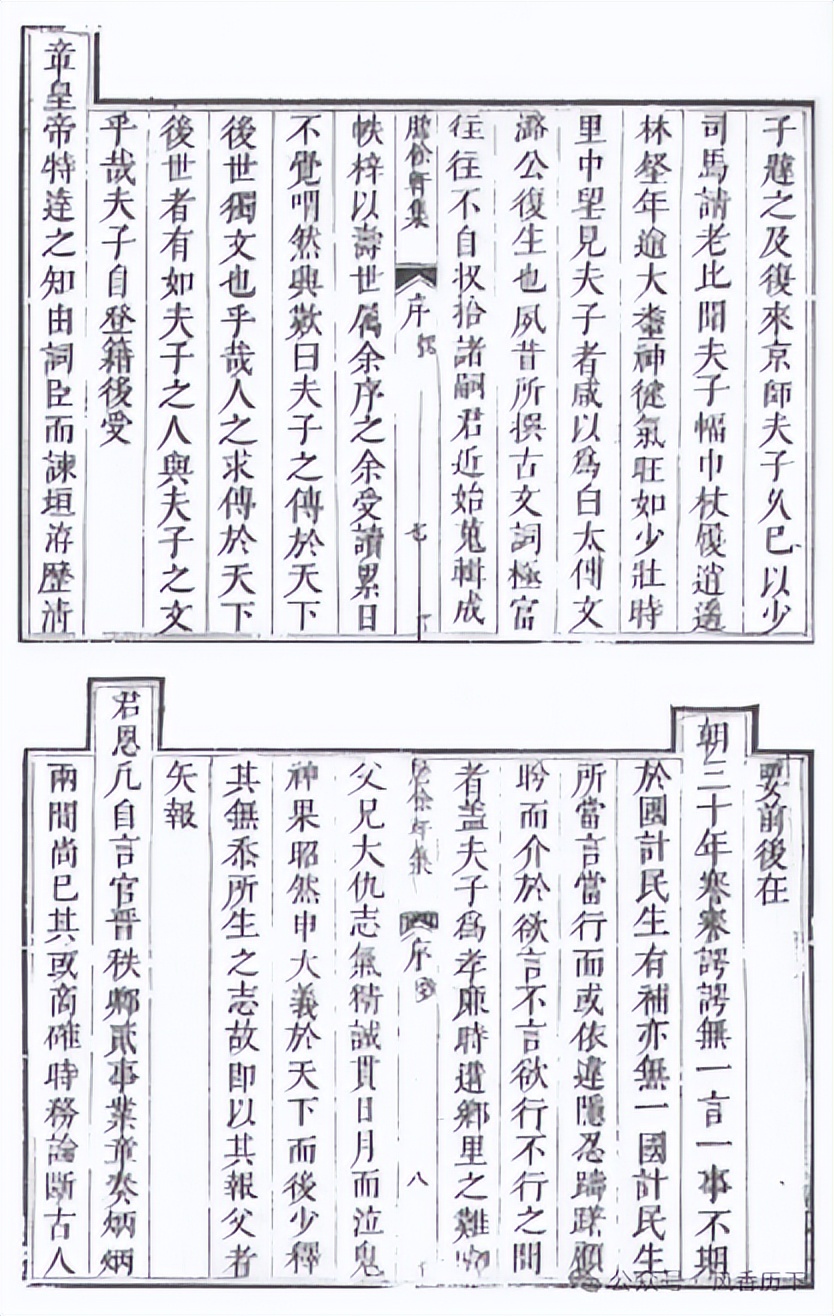 子韙之及復來京師夫子久已以少
司馬請老比聞夫子幅巾杖履逍遙
林壑年逾大耋神健氣旺如少壯時
里中望見夫子者咸以為白太傅文
潞公復生也夙昔所撰古文詞極富
往往不自收拾諸嗣君近始蒐輯成
軒集
序
七
帙梓以壽世屬余序之余受讀累日
不覺喟然興歎曰夫子之傳於天下
後世獨文也乎哉人之求傳於天下
後世者有如夫子之人與夫子之文
乎哉夫子自登籍後受
章皇帝特達之知由詞臣而諫垣洊歷清
要前後在
朝三十年謇謇諤諤無一言一事不期
於國計民生有補亦無一國計民生
所當言當行而或依違隱忍躊躇顧
盻而介於欲言不言欲行不行之間
者蓋夫子為孝廉時遘鄉里之難
集
序
八
父兄大仇志氣精誠貫日月而泣鬼
神果昭然申大義於天下而後少釋
其無忝所生之志故即以其報父者
矢報
君恩凡自言官晉秩卿貳事業章奏炳炳
兩間尚已其或商確時務論斷古人
公众号·风香历下